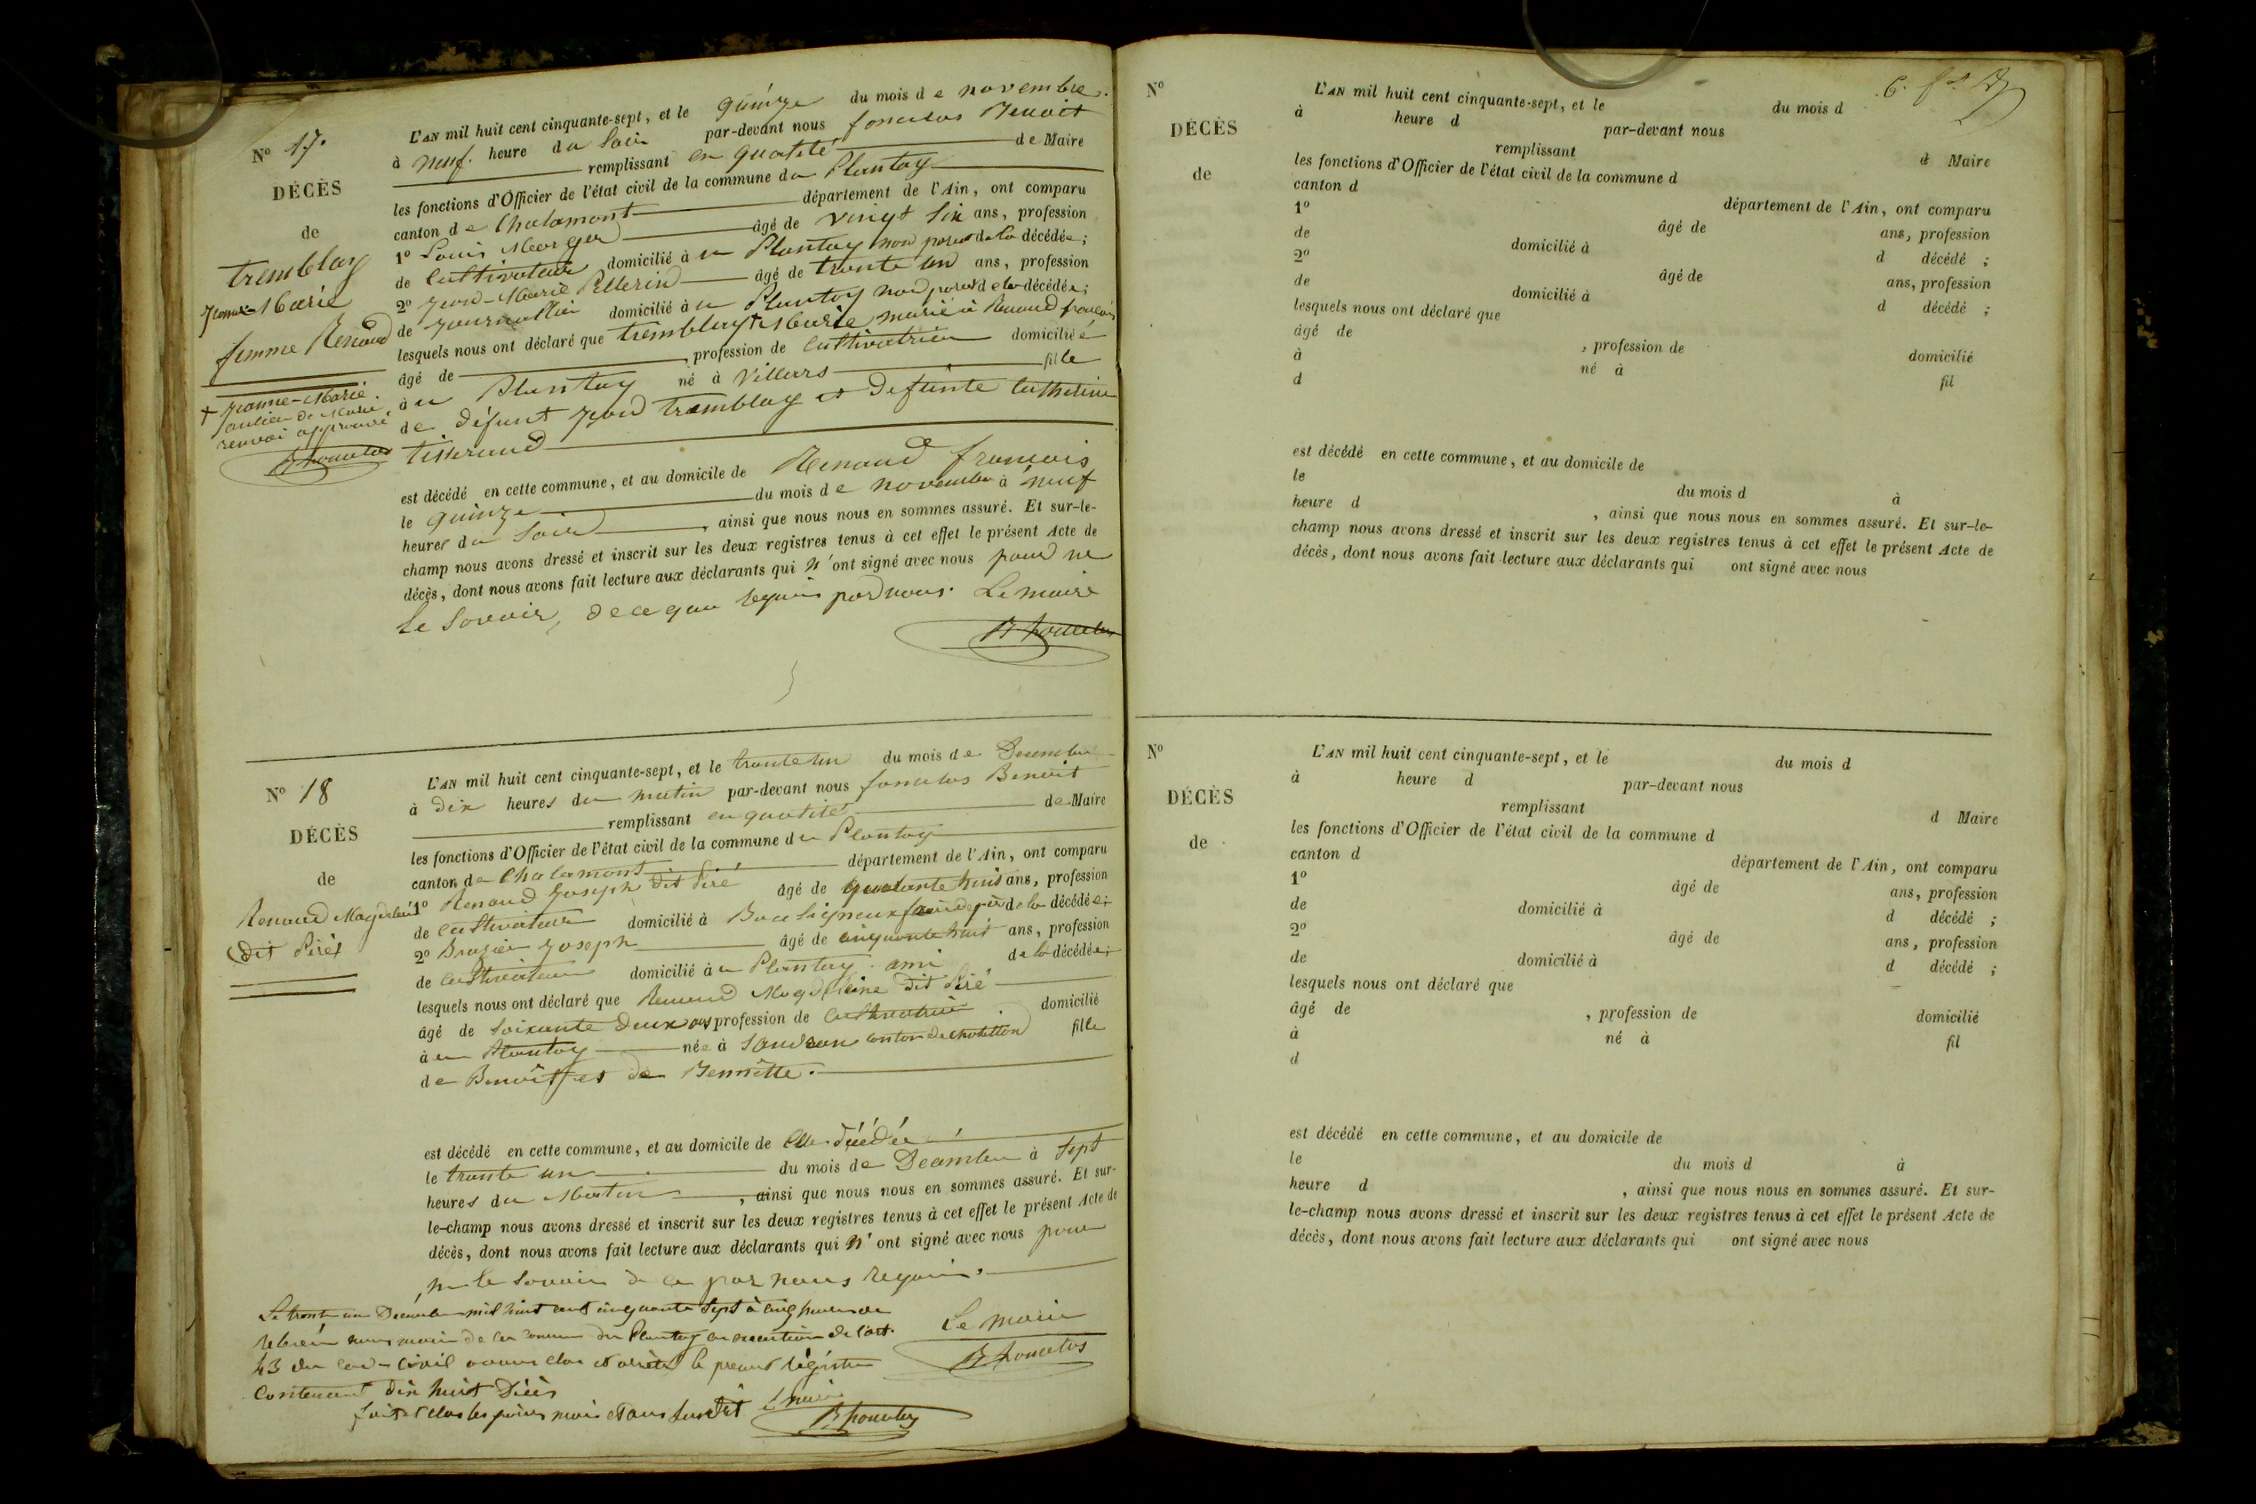 N° 17.
DÉCÈS
de
tremblay
Jeanne-Marie
femme Renaud
+ Jeanne-Marie.
au lieu de Marie,
renvoi approuvé
L'AN mil huit cent cinquante-sept, et le quinze du mois de novembre.
à neuf. heure du Soir par-devant nous Benoit
remplissant en qualité de Maire
les fonctions d'Officier de l'état civil de la commune du Plantay
canton de Chalamont département de l'Ain, ont comparu
1° Louis âgé de vingt Six ans, profession
de Cultivateur domicilié à u Plantay non parent de la décédée;
2° Jean-Marie Pellerin âgé de trente un ans, profession
de Journallier domicilié à u Plantay non parent de la décédée;
lesquels nous ont déclaré que tremblay + Marie marié à Renaud françois
âgé de , profession de Cultivatrice domiciliée
à u Plantay né à Villars fille
de défunt Jean tremblay et Defunte Catherine
tisserand
est décédé en cette commune, et au domicile de Renaud francois
le quinze du mois de novembre à neuf
heures du Soir , ainsi que nous nous en sommes assuré. Et sur-le-
champ nous avons dressé et inscrit sur les deux registres tenus à cet effet le présent Acte de
décès, dont nous avons fait lecture aux déclarants qui n'ont signé avec nous pour ne
le Savoir, de ce que requis par nous. Le maire
N° 18
DÉCÈS
de
Renaud Magdeleine
(dit Piré)
L'AN mil huit cent cinquante-sept, et le trente un du mois de Decembre
à dix heures du matin par-devant nous Benoit
remplissant en qualité de Maire
les fonctions d'Officier de l'état civil de la commune du Plantay
canton de Chalamont département de l'Ain, ont comparu
1° Renaud Joseph dit Piré âgé de quarante huit ans, profession
de cultivateur domicilié à de la décédée;
2° Brazier Joseph âgé de cinquante huit ans, profession
de cultivateur domicilié à u Plantay. ami de la décédée;
lesquels nous ont déclaré que Renaud Magdeleine dit Piré
âgé de soixante deux ans profession de Cultivatrice domicilié
à u Plantay née à canton de chatillon fille
de Benoit et de Benoitte.
est décédé en cette commune, et au domicile de Elle décédée
le trente un du mois de Decembre à Sept
heures du Matin , ainsi que nous nous en sommes assuré. Et sur-
le-champ nous avons dressé et inscrit sur les deux registres tenus à cet effet le présent Acte de
décès, dont nous avons fait lecture aux déclarants qui n'ont signé avec nous pour
ne le Savoir de ce par nous requis.
Le trente un Decembre mil huit cent cinquante Sept à cinq heures de
relevée nous maire de la Commune du Plantay en execution de l'art.
43 du code Civil avons clos et arrêté le présent régistre
Contenant dix huit Décès
fait et clos les jours mois et ans susdit
Le maire
Le maire
N°
DÉCÈS
de
L'AN mil huit cent cinquante-sept, et le du mois d
à heure d par-devant nous
remplissant d Maire
les fonctions d'Officier de l'état civil de la commune d
canton d département de l'Ain, ont comparu
1° âgé de ans, profession
de domicilié à d décédé ;
2° âgé de ans, profession
de domicilié à d décédé ;
lesquels nous ont déclaré que
âgé de , profession de domicilié
à né à fil
d
est décédé en cette commune, et au domicile de
le du mois d à
heure d , ainsi que nous nous en sommes assuré. Et sur-le-
champ nous avons dressé et inscrit sur les deux registres tenus à cet effet le présent Acte de
décès, dont nous avons fait lecture aux déclarants qui ont signé avec nous
N°
DÉCÈS
de
L'AN mil huit cent cinquante-sept, et le du mois d
à heure d par-devant nous
remplissant d Maire
les fonctions d'Officier de l'état civil de la commune d
canton d département de l'Ain, ont comparu
1° âgé de ans, profession
de domicilié à d décédé ;
2° âgé de ans, profession
de domicilié à d décédé ;
lesquels nous ont déclaré que
âgé de , profession de domicilié
à né à fil
d
est décédé en cette commune, et au domicile de
le du mois d à
heure d , ainsi que nous nous en sommes assuré. Et sur-
le-champ nous avons dressé et inscrit sur les deux registres tenus à cet effet le présent Acte de
décès, dont nous avons fait lecture aux déclarants qui ont signé avec nous